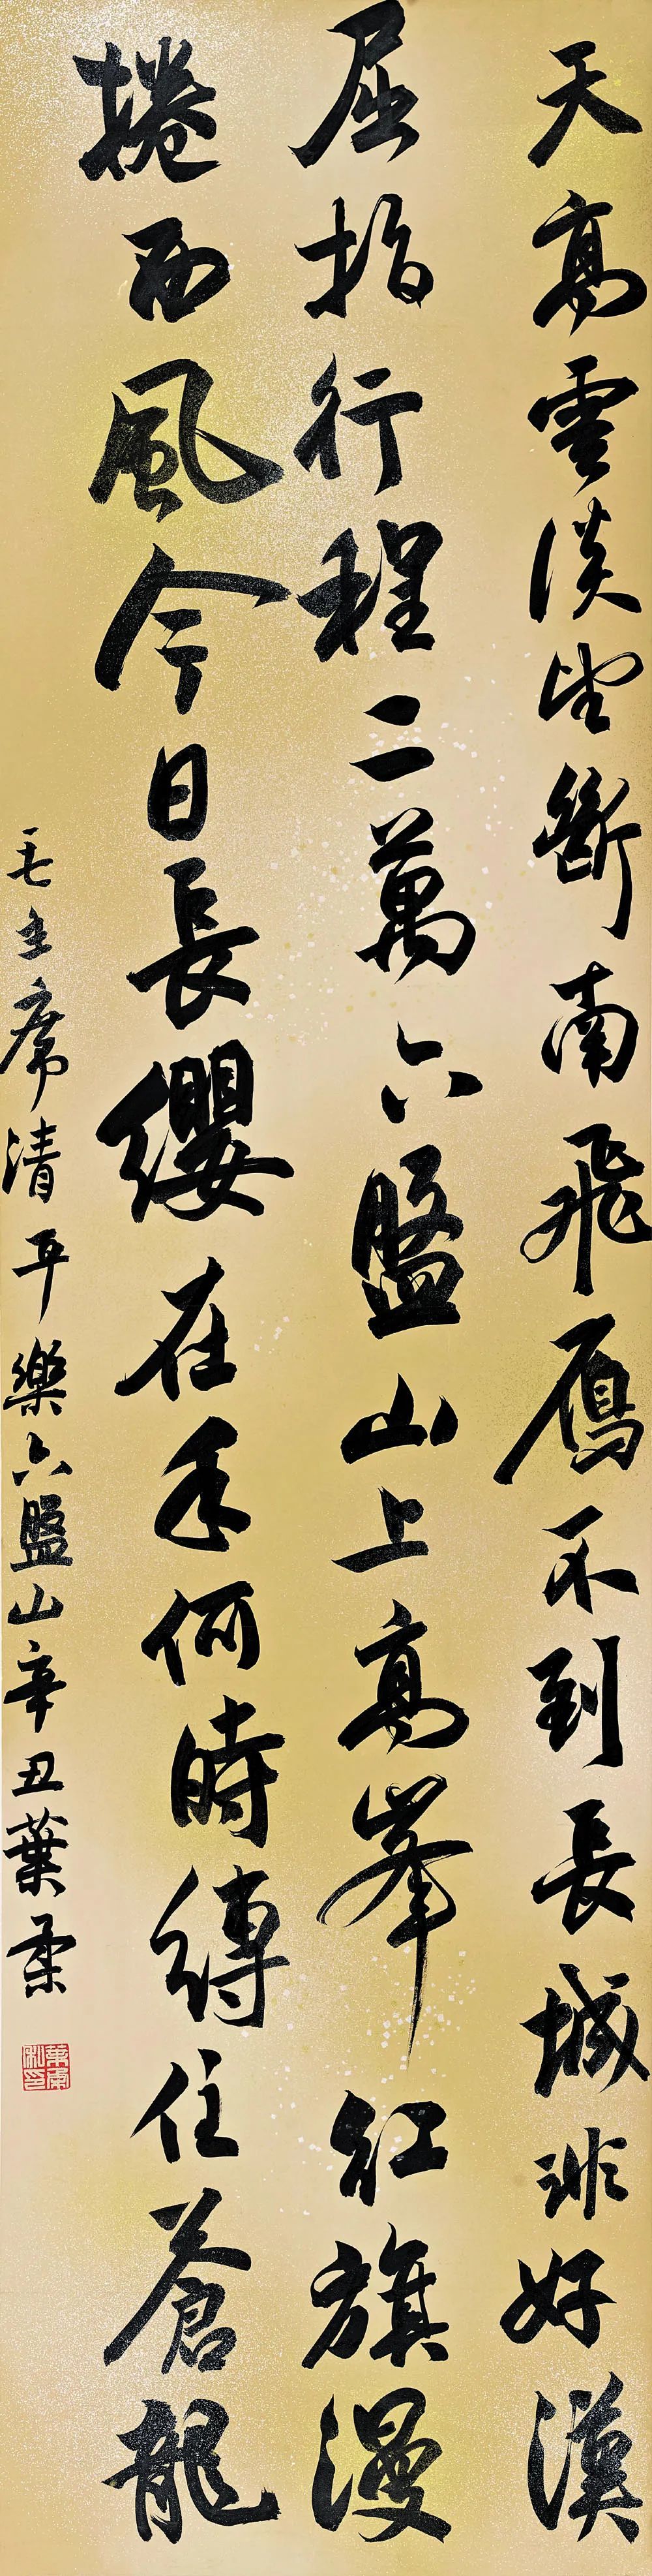 天高雲淡望斷南飛雁不到長城非好漢
屈指行程二萬六盤山上高峯紅旗漫
捲西風今日長纓在手何時縛住蒼龍
毛主席清平樂六盤山辛丑葉柔